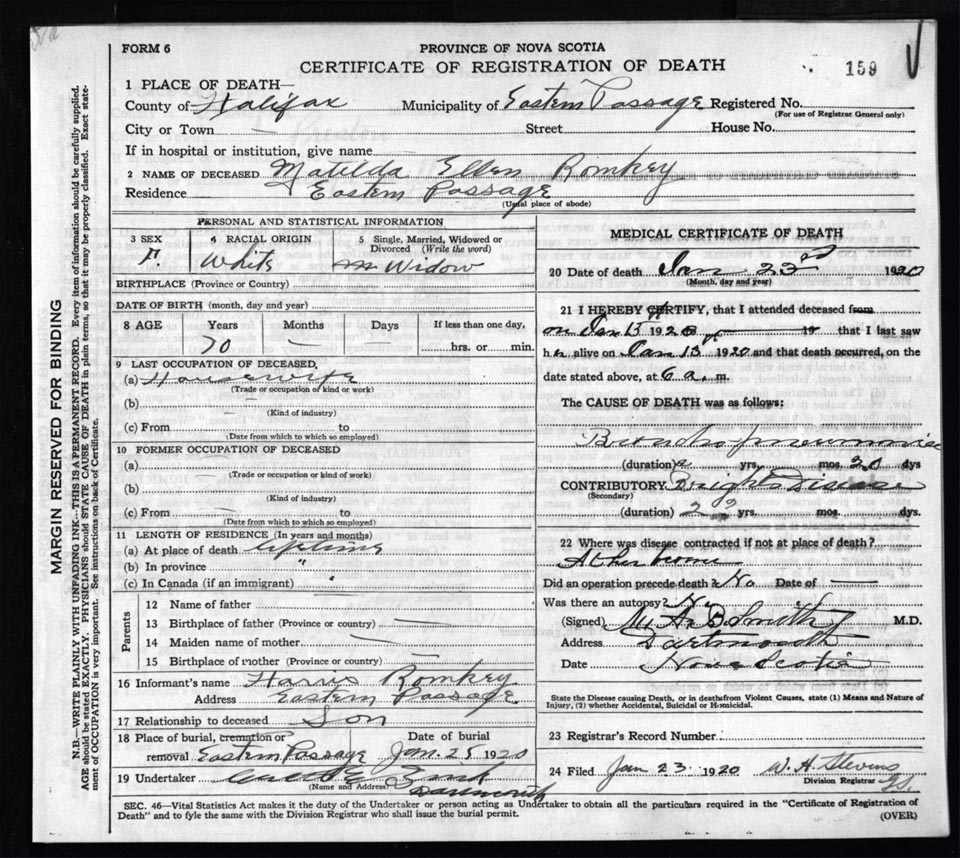 FORM 6
PROVINCE OF NOVA SCOTIA
CERTIFICATE OF REGISTRATION OF DEATH
159
1 PLACE OF DEATH—
County of Halifax Municipality of Eastern Passage Registered No.
(For use of Registrar General only)
City or Town — Street House No.
If in hospital or institution, give name
2 NAME OF DECEASED Matilda Ellen Romkey
Residence Eastern Passage
(Usual place of abode)
PERSONAL AND STATISTICAL INFORMATION
3 SEX F.
4 RACIAL ORIGIN White
5 Single, Married, Widowed or Divorced (Write the word) Widow
BIRTHPLACE (Province or County)
DATE OF BIRTH (month, day and year)
8 AGE Years Months Days If less than one day,
70 — — hrs. or min.
9 LAST OCCUPATION OF DECEASED,
(a) Housewife
(Trade or occupation of kind or work)
(b) —
(Kind of industry)
(c) From to
(Date from which to which so employed)
10 FORMER OCCUPATION OF DECEASED
(a)
(Trade or occupation or kind of work)
(b)
(Kind of industry)
(c) From — to
(Date from which to which so employed)
11 LENGTH OF RESIDENCE (In years and months)
(a) At place of death lifetime
(b) In province "
(c) In Canada (if an immigrant)
Parents
12 Name of father
13 Birthplace of father (Province or country)
14 Maiden name of mother
15 Birthplace of mother (Province or country)
16 Informant's name Harris Romkey
Address Eastern Passage
17 Relationship to deceased Son
18 Place of burial, cremation or removal Eastern Passage Date of burial Jan. 25 1920
19 Undertaker
(Name and Address) Dartmouth
MEDICAL CERTIFICATE OF DEATH
20 Date of death Jan 23rd 1920
(Month, day and year)
21 I HEREBY CERTIFY, that I attended deceased from
on Jan 13 1920 19 that I last saw
her alive on Jan 13 1920 and that death occurred, on the
date stated above, at 6 a.m.
The CAUSE OF DEATH was as follows:
Broncho pneumonia
(duration) yrs. mos. 20 dys
CONTRIBUTORY Brights Disease
(Secondary)
(duration) 2 ? yrs. mos. dys.
22 Where was disease contracted if not at place of death?
At her home
Did an operation precede death? No Date of —
Was there an autopsy? No
(Signed) Smith M.D.
Address Dartmouth
Date Nova Scotia
State the Disease causing Death, or in deaths from Violent Causes, state (1) Means and Nature of
Injury, (2) whether Accidental, Suicidal or Homicidal.
23 Registrar's Record Number
24 Filed Jan 23 1920 W. H. Stevens
Division Registrar
SEC. 46—Vital Statistics Act makes it the duty of the Undertaker or person acting as Undertaker to obtain all the particulars required in the "Certificate of Registration of
Death" and to fyle the same with the Division Registrar who shall issue the burial permit.
(OVER)
MARGIN RESERVED FOR BINDING
N.B.—WRITE PLAINLY WITH UNFADING INK—THIS IS A PERMANENT RECORD. Every item of information should be carefully supplied.
AGE should be stated EXACTLY. PHYSICIANS should STATE CAUSE OF DEATH in plain terms, so that it may be properly classified. Exact state-
ment of OCCUPATION is very important. See instructions on back of Certificate.